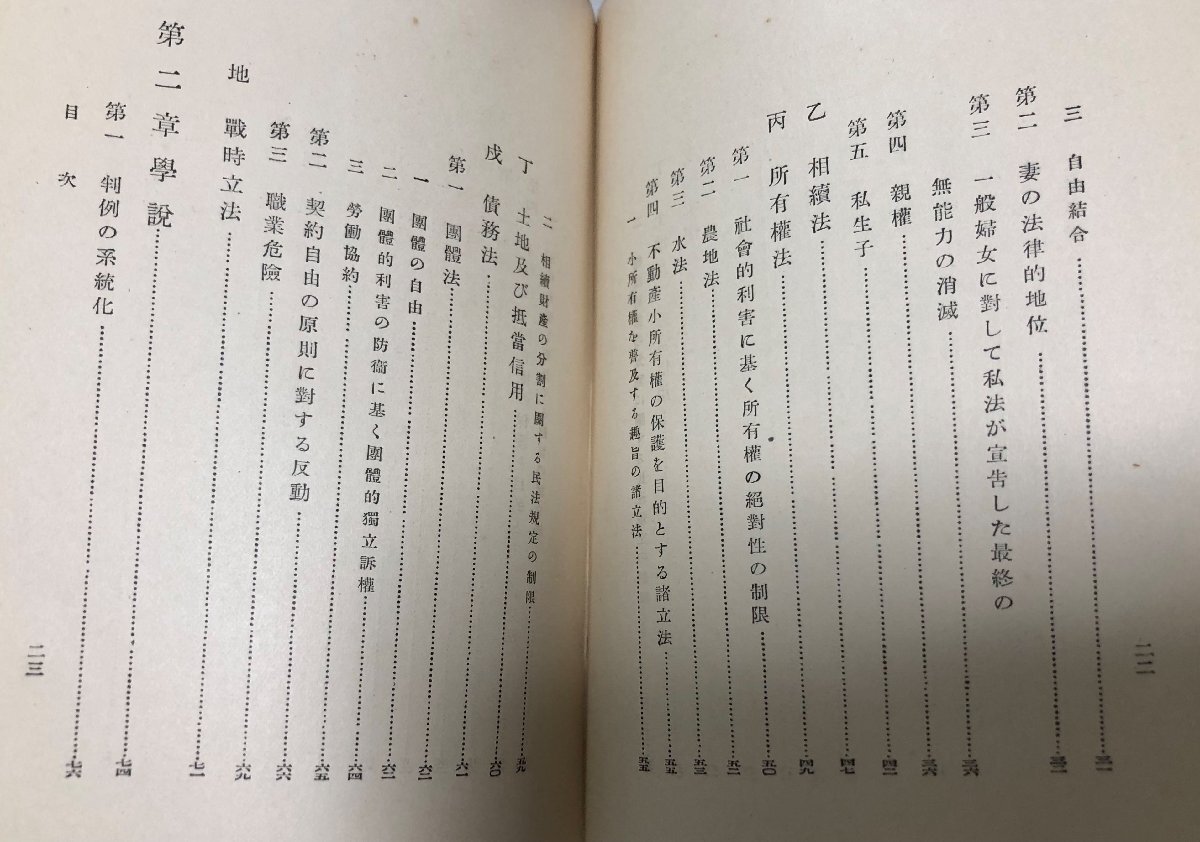 三 自由結合……三一
第二 妻の法律的地位……三二
第三 一般婦女に對して私法が宣告した最終の
無能力の消滅……三六
第四 親權……三六
第五 私生子……四二
乙 相續法……四七
丙 所有權法……四九
第一 社會的利害に基く所有權の絕對性の制限……五〇
第二 農地法……五二
第三 水法……五三
第四 不動產小所有權の保護を目的とする諸立法……五五
一 小所有權を普及する趣旨の諸立法……五五
二二
二 相續財產の分割に關する民法規定の制限……五九
丁 土地及び抵當信用……六〇
戊 債務法……六一
第一 團體法……六二
一 團體の自由……六二
二 團體的利害の防衞に基く團體的獨立訴權……六四
三 勞働協約……六五
第二 契約自由の原則に對する反動……六六
第三 職業危險……六九
地 戰時立法……七一
第二章 學說……七四
第一 判例の系統化……七六
目次
二三